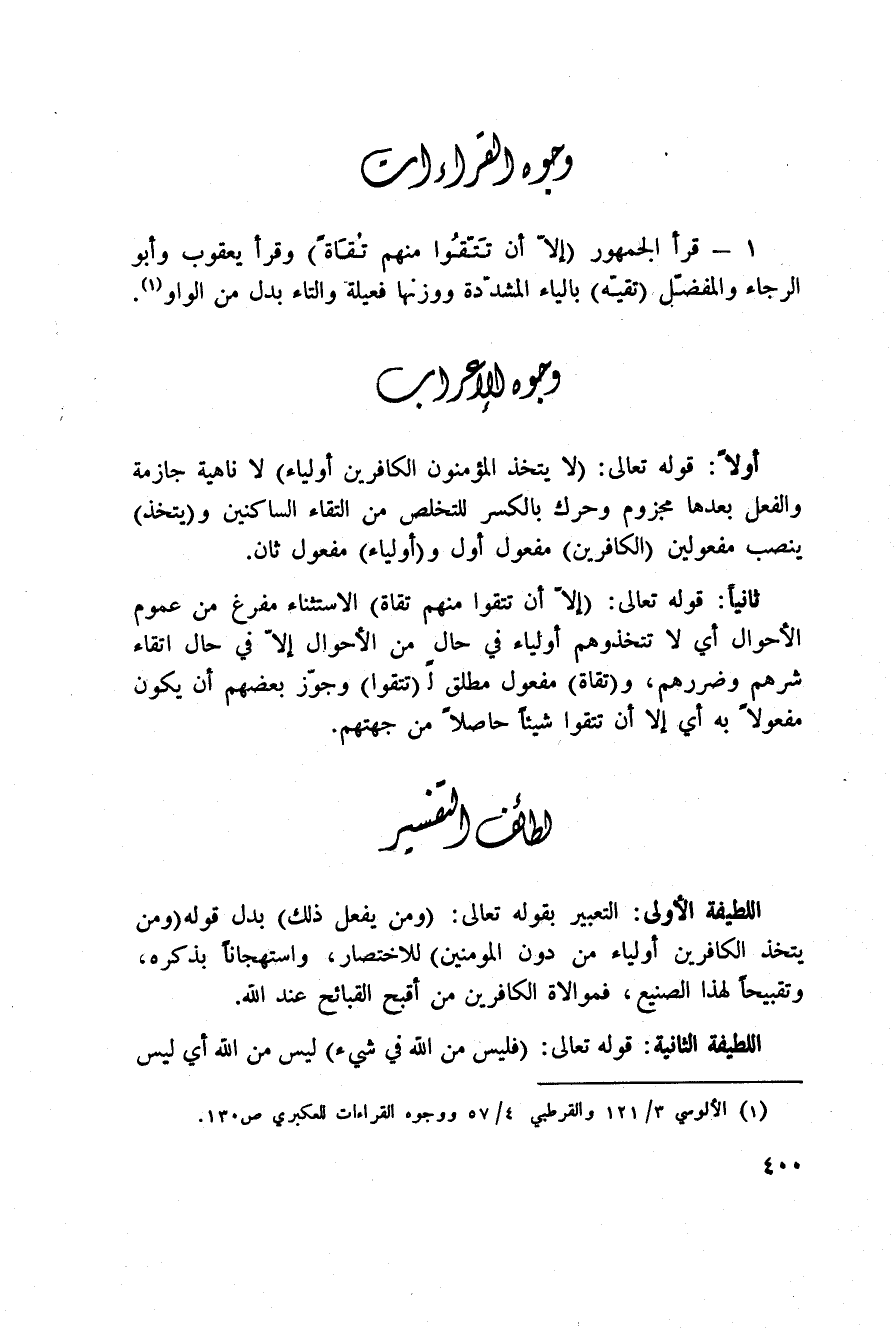 وجوه القراءات
١ – قرأ الجمهور (إلاّ أن تَتَّقُوا منهم تُقَاةً) وقرأ يعقوب وأبو
الرجاء والمفضّل (تقيّه) بالياء المشدّدة ووزنها فعيلة والتاء بدل من الواو(١).
وجوه الإعراب
أولاً: قوله تعالى: (لا يتخذ المؤمنون الكافرين أولياء) لا ناهية جازمة
والفعل بعدها مجزوم وحرك بالكسر للتخلص من التقاء الساكنين و(يتخذ)
ينصب مفعولين (الكافرين) مفعول أول و(أولياء) مفعول ثان.
ثانياً: قوله تعالى: (إلاّ أن تتقوا منهم تقاة) الاستثناء مفرغ من عموم
الأحوال أي لا تتخذوهم أولياء في حال من الأحوال إلاّ في حال اتقاء
شرهم وضررهم، و(تقاة) مفعول مطلق لـ (تتقوا) وجوّز بعضهم أن يكون
مفعولاً به أي إلا أن تتقوا شيئاً حاصلاً من جهتهم.
لطائف التفسير
اللطيفة الأولى: التعبير بقوله تعالى: (ومن يفعل ذلك) بدل قوله(ومن
يتخذ الكافرين أولياء من دون المومنين) للاختصار، واستهجاناً بذكره،
وتقبيحاً لهذا الصنيع، فموالاة الكافرين من أقبح القبائح عند الله.
اللطيفة الثانية: قوله تعالى: (فليس من الله في شيء) ليس من الله أي ليس
(١) الألوسي ٣/ ١٢١ والقرطبي ٤/ ٥٧ ووجوه القراءات للعكبري ص١٣٠.
٤٠٠